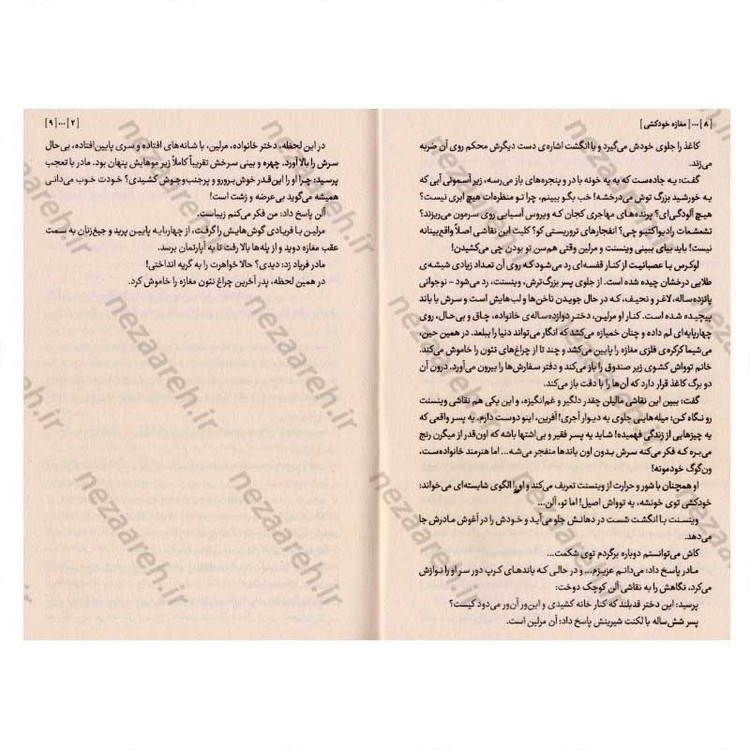 [۸] ... [مغازه خودکشی]
کاغذ را جلوی خودش می‌گیرد و با انگشت اشاره‌ی دست دیگرش محکم روی آن ضربه
می‌زند.
گفت: یه جاده‌ست که به یه خونه با در و پنجره‌های باز می‌رسه، زیر آسمونی آبی که
یه خورشید بزرگ توش می‌درخشه! خب بگو ببینم، چرا تو منظره‌ات هیچ ابری نیست؟
هیچ آلودگی‌ای؟ پرنده‌های مهاجری کجان که ویروس آسیایی روی سرمون می‌ریزند؟
تشعشعات رادیواکتیو چی؟ انفجارهای تروریستی کو؟ کلیت این نقاشی اصلاً واقع‌بینانه
نیست! باید بیای ببینی وینسنت و مرلین وقتی هم‌سن تو بودن چی می‌کشیدن!
لوکرس با عصبانیت از کنار قفسه‌ای رد می‌شود که روی آن تعداد زیادی شیشه‌ی
طلایی درخشان چیده شده است. از جلوی پسر بزرگ‌ترش، وینسنت، رد می‌شود - نوجوانی
پانزده‌ساله، لاغر و نحیف، که در حال جویدن ناخن‌ها و لب‌هایش است و سرش با باند
پیچیده شده است. کنار او مرلین، دختر دوازده‌ساله‌ی خانواده، چاق و بی‌حال، روی
چهارپایه‌ای لم داده و چنان خمیازه می‌کشد که انگار می‌تواند دنیا را ببلعد. در همین حین،
می‌شیما کرکره‌ی فلزی مغازه را پایین می‌کشد و چند تا از چراغ‌های نئون را خاموش می‌کند.
خانم توواش کشوی زیر صندوق را باز می‌کند و دفتر سفارش‌ها را بیرون می‌آورد. درون آن
دو برگ کاغذ قرار دارد که آن‌ها را با دقت باز می‌کند.
گفت: ببین این نقاشی مالیان چقدر دلگیر و غم‌انگیزه، و این یکی هم نقاشی وینسنت
رو نگاه کن: میله‌هایی جلوی یه دیوار آجری! آفرین، اینو دوست دارم. یه پسر واقعی که
یه چیزهایی از زندگی فهمیده! شاید یه پسر فقیر و بی‌اشتها باشه که اون‌قدر از میگرن رنج
می‌بره که فکر می‌کنه سرش بدون اون باندها منفجر می‌شه... اما هنرمند خانواده‌ست،
ون‌گوگ خودمونه!
او همچنان با شور و حرارت از وینسنت تعریف می‌کند و او را الگوی شایسته‌ای می‌خواند:
خودکشی توی خونشه، یه توواش اصیل! اما تو، آلن...
وینسنت با انگشت شست در دهانش جلو می‌آید و خودش را در آغوش مادرش جا
می‌دهد.
کاش می‌توانستم دوباره برگردم توی شکمت...
مادر پاسخ داد: می‌دانم عزیزم... و در حالی که باندهای کرپ دور سر او را نوازش
می‌کرد، نگاهش را به نقاشی آلن کوچک دوخت:
پرسید: این دختر قدبلند که کنار خانه کشیدی و این‌ور آن‌ور می‌دود کیست؟
پسر شش‌ساله با لکنت شیرینش پاسخ داد: آن مرلین است.
[۲] ... [۹]
در این لحظه، دختر خانواده، مرلین، با شانه‌های افتاده و سری پایین‌افتاده، بی‌حال
سرش را بالا آورد. چهره و بینی سرخش تقریباً کاملاً زیر موهایش پنهان بود. مادر با تعجب
پرسید: چرا او را این‌قدر خوش‌برورو و پرجنب‌وجوش کشیدی؟ خودت خوب می‌دانی
همیشه می‌گوید بی‌عرضه و زشت است!
آلن پاسخ داد: من فکر می‌کنم زیباست.
مرلین با فریادی گوش‌هایش را گرفت، از چهارپایه پایین پرید و جیغ‌زنان به سمت
عقب مغازه دوید و از پله‌ها بالا رفت تا به آپارتمان برسد.
مادر فریاد زد: دیدی؟ حالا خواهرت را به گریه انداختی!
در همین لحظه، پدر آخرین چراغ نئون مغازه را خاموش کرد.
nezaareh.ir